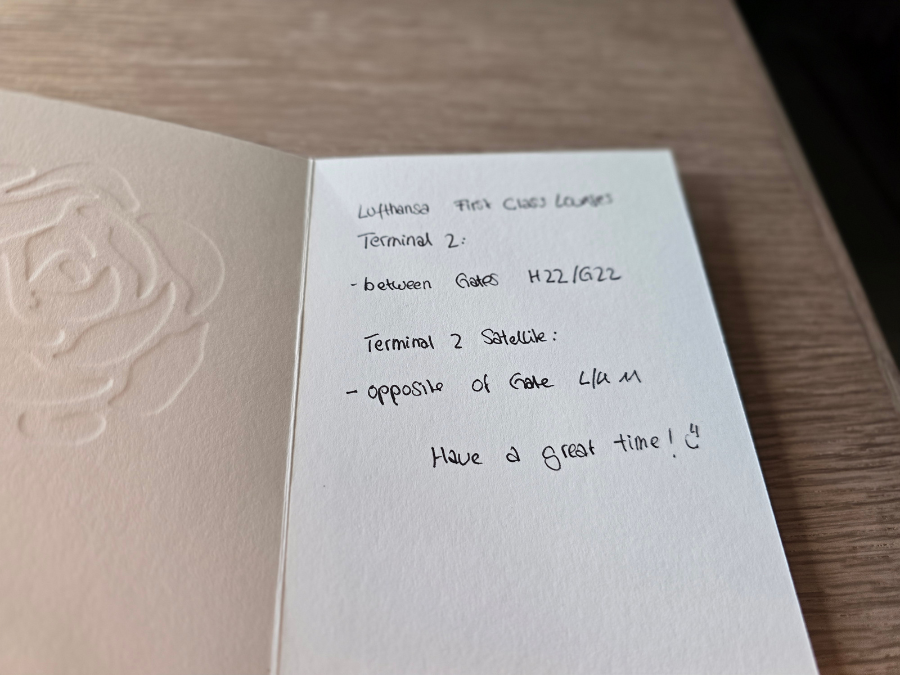 Lufthansa First Class Lounges
Terminal 2:
- between Gates H22/G22
Terminal 2 Satellite:
- opposite of Gate L/
Have a great time!